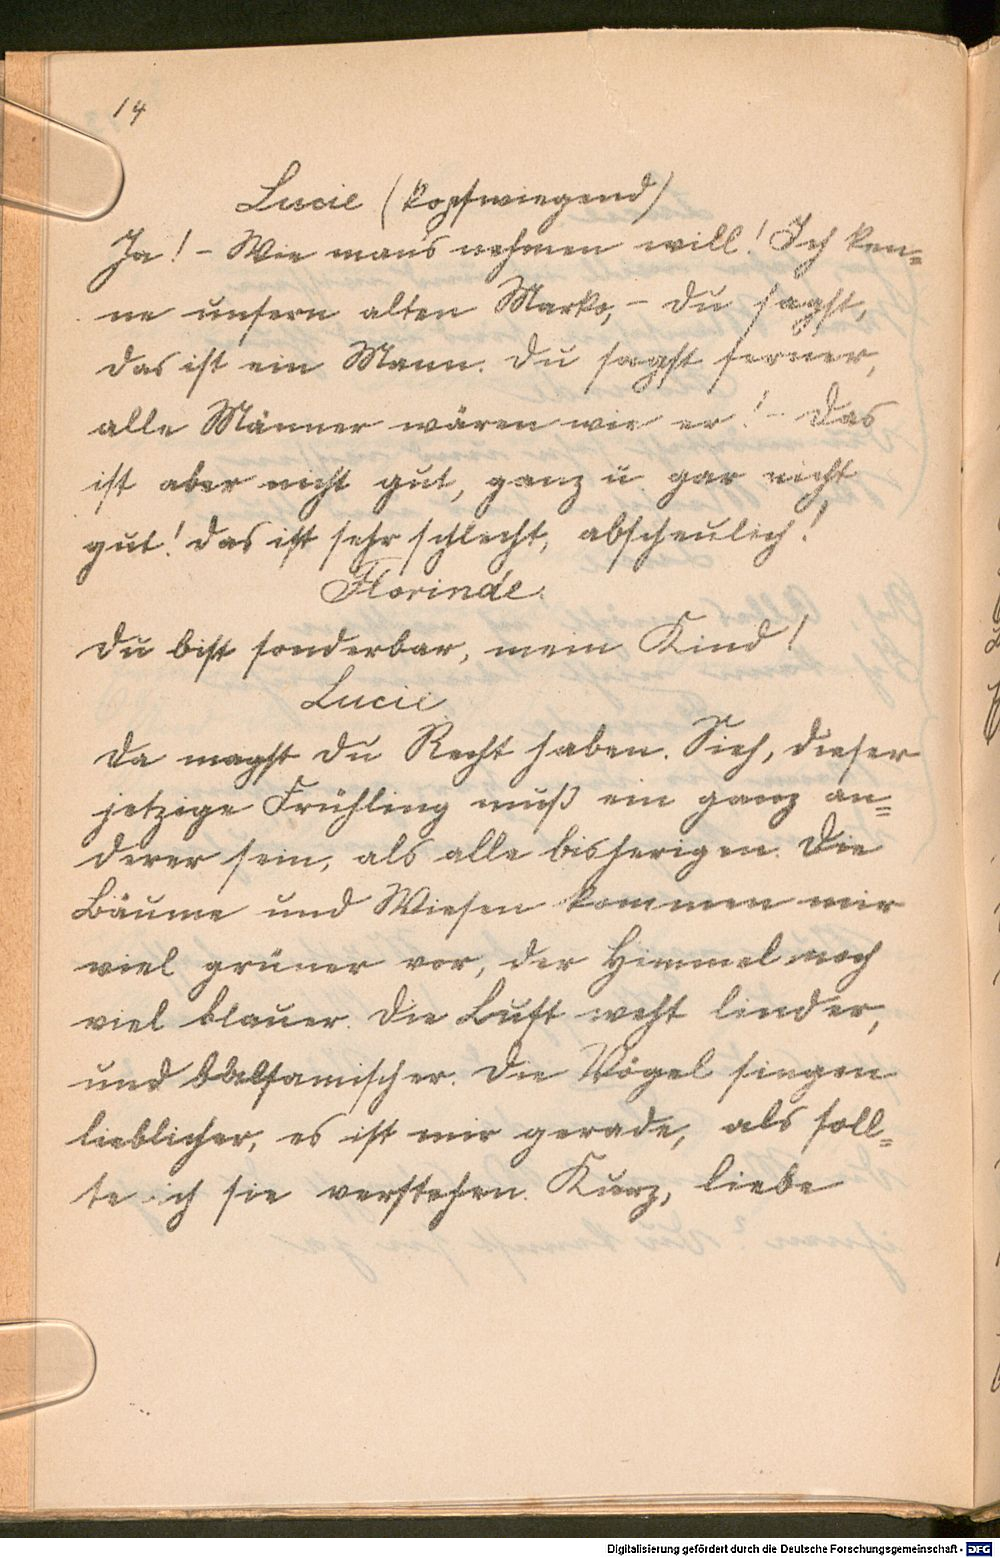 14
Lucie (kopfwiegend)
Ja! – Wie man's nehmen will! Ich ken=
ne unsern alten Marko, – du sagst,
das ist ein Mann. Du sagst ferner,
alle Männer wären wie er! – Das
ist aber nicht gut, ganz u. gar nicht
gut! Das ist sehr schlecht, abscheulich!
Florinde.
Du bist sonderbar, mein Kind!
Lucie
Da magst Du Recht haben. Sieh, dieser
jetzige Frühling muß ein ganz an=
derer sein, als alle bisherigen. Die
Bäume und Wiesen kommen mir
viel grüner vor, der Himmel noch
viel blauer. Die Luft weht linder,
und balsamischer. Die Vögel singen
lieblicher, es ist mir gerade, als soll=
te ich sie verstehen. Kurz, liebe
Digitalisierung gefördert durch die Deutsche Forschungsgemeinschaft - DFG